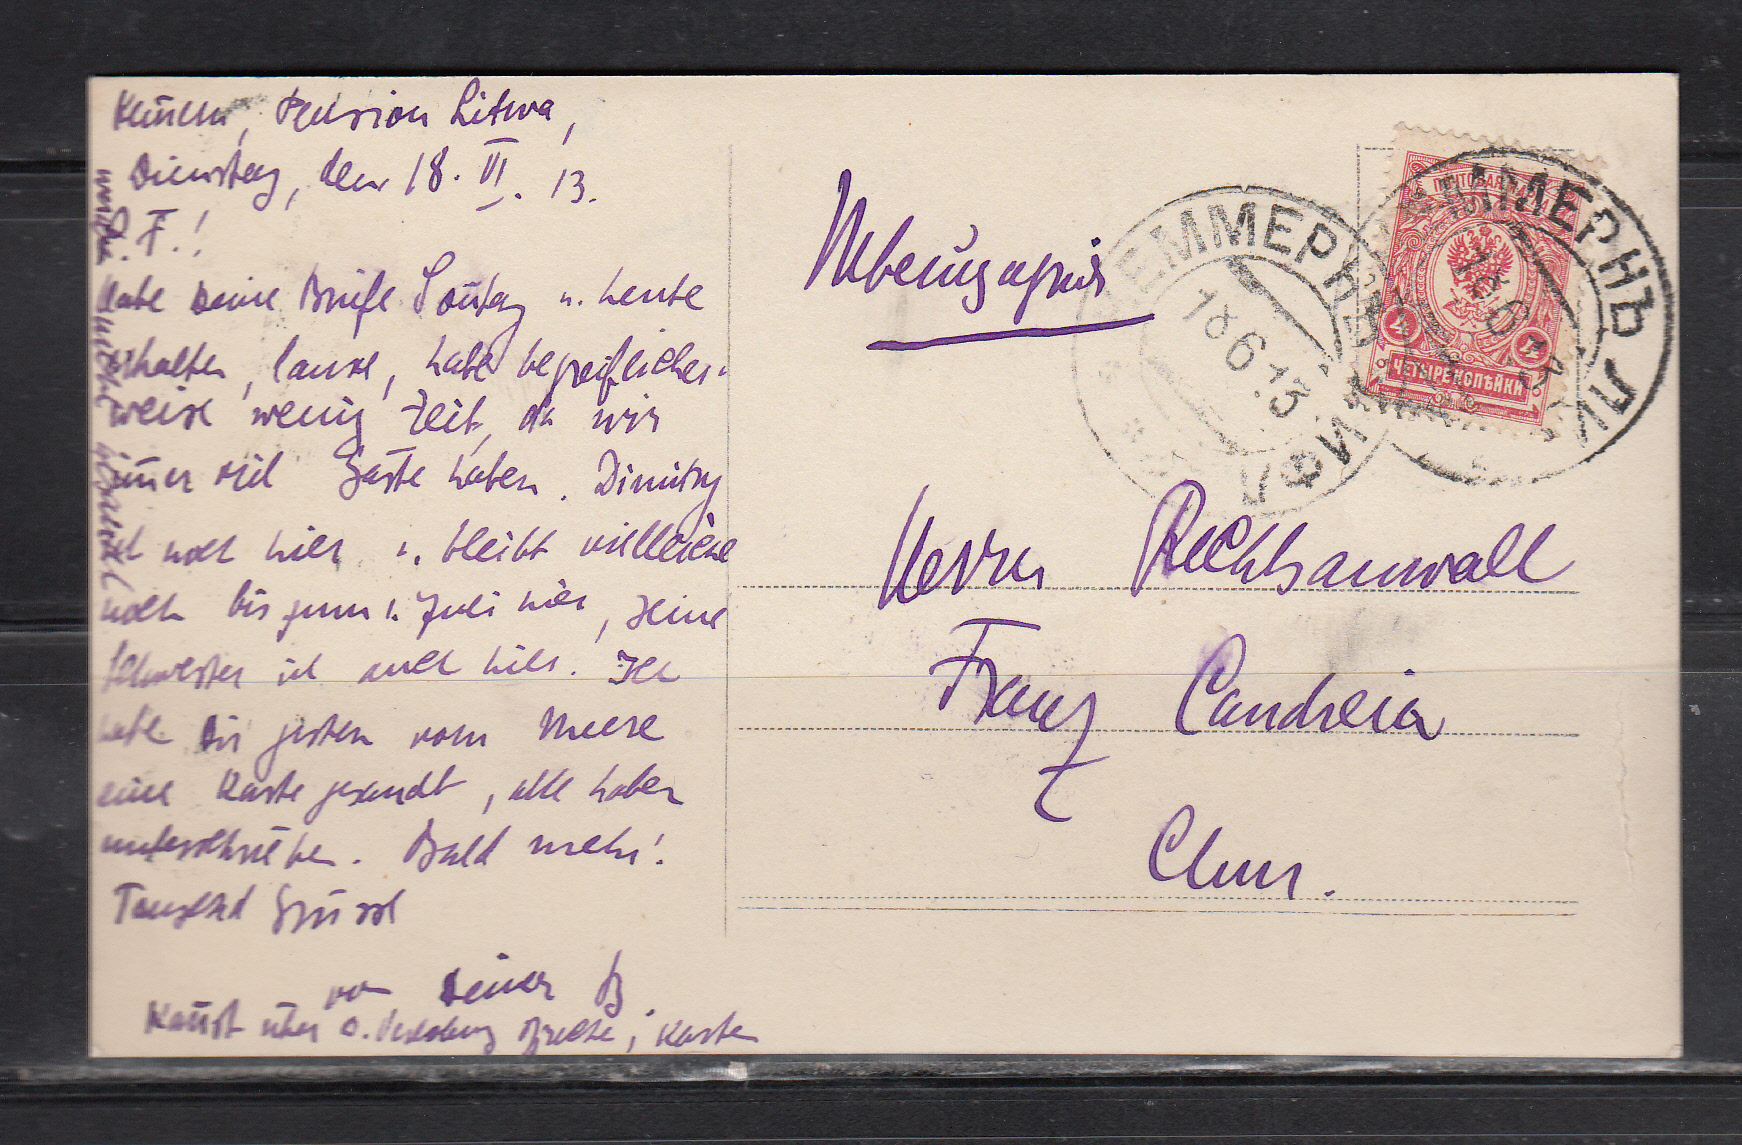 Pension Litwa,
Dienstag, den 18. VI. 13.
L. F.!
Habe Deine Briefe Soñtag u. heute
erhalten, danke, habe begreiflicher-
weise wenig Zeit, da wir
im̃er viel Gäste haben. Dimitry
ist noch hier u. bleibt vielleicht
noch bis zum 1. Juli hier, seine
Schwester ist auch hier. Ich
habe Dir gestern vom Meere
eine Karte gesandt, alle haben
unterschrieben. Bald mehr!
Tausend Grüsse
von Deiner B
Kañst über d. Verlobung; Karte
Швейцарія
Herrn Rechtsanwalt
Franz Candreia
Chur.
КЕММЕРНЪ ЛИФЛ
18 6 13
ПОЧТОВАЯ МАРКА
4 4
ЧЕТЫРЕ КОПѢЙКИ
КЕММЕРНЪ ЛИ
18 6 13